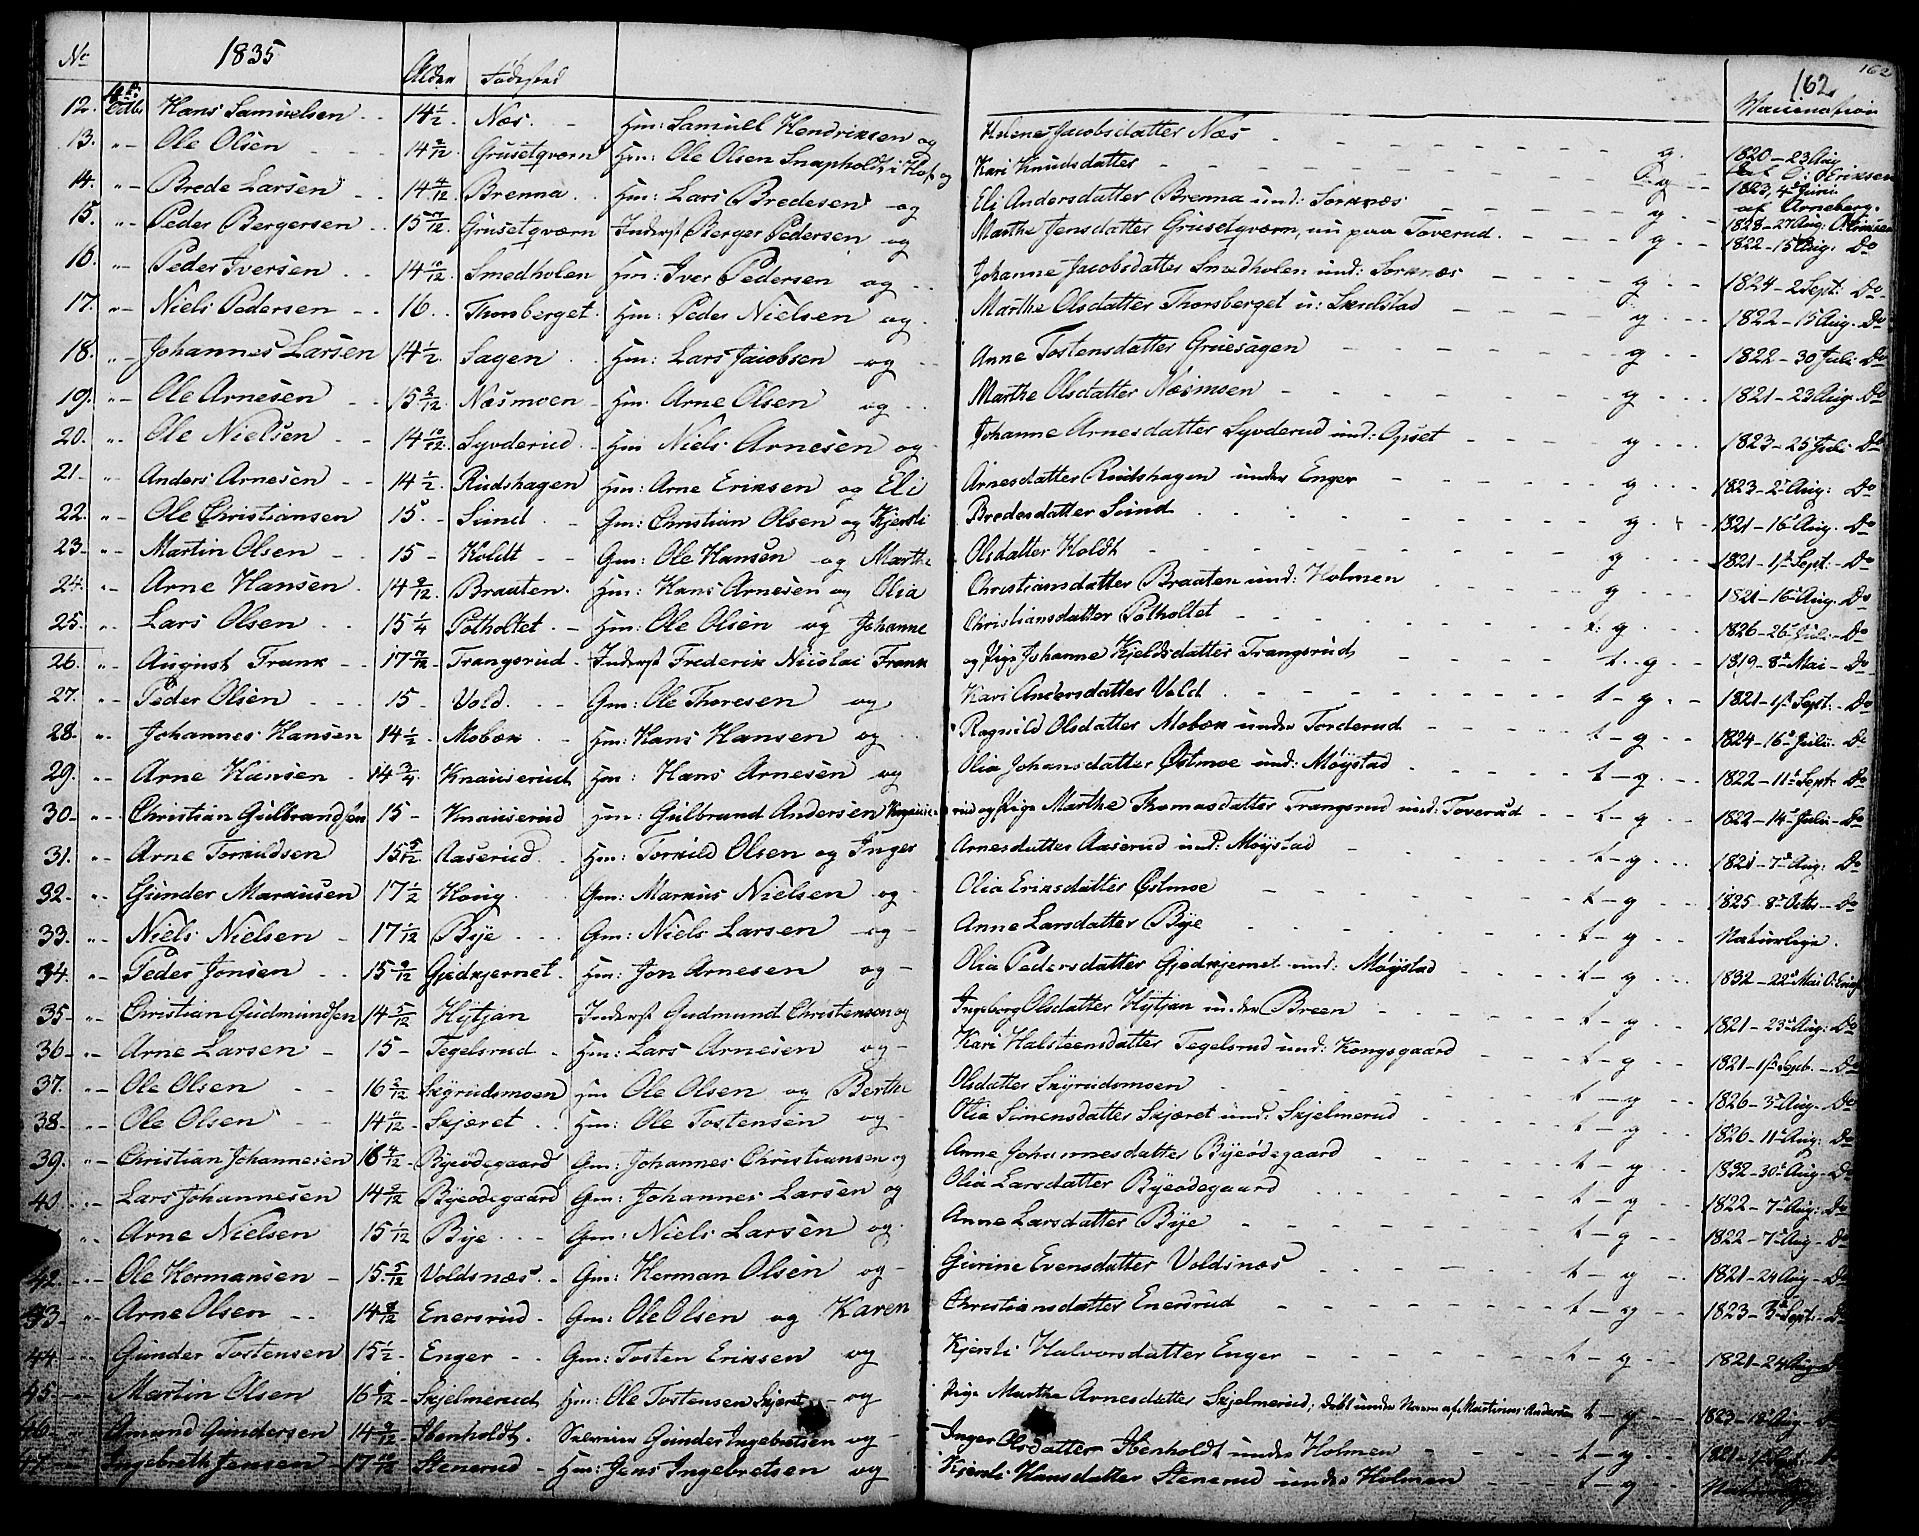 162
No 1835 Alder Fødested 162 Vaccination
12. 4de Octbr Hans Samuelsen 14 1/2 Næs Hm: Samuel Hendriksen og Helene Jacobsdatter Næs g. 1820 - 23 Aug
13. "- Ole Olsen 14 9/12 Grusetqværn Hm: Ole Olsen Snapholdt i Hof og Kari Knudsdatter g 1823, 4de Juni af Arneberg.
14. "- Brede Larsen 14 4/12 Brenna Hm: Lars Bredesen og Eli Andersdatter Brenna und: Sorknæs g 1828 - 27 Aug: O. Eriksen
15. "- Peder Bergersen 15 7/12 Grusetqværn Inderst Berger Pedersen og Marthe Jensdatter Grusetqværn, nu paa Toverud. g 1822 - 15 Aug: Do
16. "- Peder Iversen 14 10/12 Smedholen Hm: Iver Pedersen og Johanne Jacobsdatter Smedholen und: Sorknæs g 1824 - 2 Sept: Do
17. "- Niels Pedersen 16 Thorsberget Hm: Peder Nielsen og Marthe Olsdatter Thorsberget u: g 1822 - 15 Aug. Do
18. "- Johannes Larsen 14 1/2 Sagen Hm: Lars Jacobsen og Anne Tostensdatter Gruesagen g 1822 - 30 Juli Do
19. "- Ole Arnesen 15 9/12 Næsmoen Hm. Arne Olsen og Marthe Olsdatter Næsmoen g 1821 - 23 Aug. Do
20. "- Ole Nielsen 14 10/12 Syvderud Hm Niels Arnesen og Johanne Arnesdatter Syvderud und: Opset g 1823 - 25 Juli Do
21. "- Anders Arnesen 14 1/2 Rudshagen Hm: Arne Eriksen og Eli Arnesdatter Rudshagen under Enger g 1823 - 2 Aug: Do
22. "- Ole Christiansen 15 Sund Gm: Christian Olsen og Kjersti Bredesdatter Sund g 1821 - 16 Aug. Do
23. "- Martin Olsen 15 - Holdt Gm: Ole Hansen og Marthe Olsdatter Holdt g 1821 - 1st Sept. Do
24. "- Arne Hansen 14 9/12 Braaten Hm: Hans Arnesen og Olia Christiansdatter Braaten und: Holmen g 1821 - 16 Aug. Do
25. "- Lars Olsen 15 1/4 Potholtet Hm: Ole Olsen og Johanne Christiansdatter Potholtet t. g 1826 - 26 Juli Do
26. "- August Frank 17 7/12 Trangsrud Inderst Frederik Nicolai Frank og Pige Johanne Kjeldsdatter Trangsrud t. g 1819 - 8de Mai - Do
27. "- Peder Olsen 15 - Vold Gm: Ole Thoresen og Kari Andersdatter Vold t - g 1821 - 1st Sept. Do
28. "- Johannes Hansen 14 1/2 Mobæk Hm: Hans Hansen og Ragnild Olsdatter Mobæk under Torderud t - g 1824 - 16 Juli Do
29. "- Arne Hansen 14 3/4 Knauserud Hm: Hans Arnesen og Olia Johansdatter Østmoe und: Møystad t - g 1822 - 11 Sept. Do
30. "- Christian Gulbrandsen 15 - Knauserud Hm: Gulbrand Andersen Knauserud og Pige Marthe Thomasdatter Trangsrud und: Toverud t - g 1822 - 14 Juli Do
31. "- Arne Torkildsen 15 5/12 Aaserud Hm: Torkild Olsen og Inger Arnesdatter Aaserud und: Møystad t - g 1821 - 7 Aug: Do
32. "- Gunder Markusen 17 1/2 Gm: Markus Nielsen og Olia Eriksdatter Østmoe t - g 1825 8 Octbr. Do
33. "- Niels Nielsen 17 1/12 Bye Gm: Niels Larsen og Anne Larsdatter Bye t - g Naturlige.
34. "- Peder Jonsen 15 9/12 Gjedkjernet Hm: Jon Arnesen og Olia Pedersdatter Gjedkjernet und: Møystad t - g 1832 - 22 Mai
35. "- Christian Gudmundsen 14 5/12 Hytjan Inderst Gudmund Christensen og Ingeborg Olsdatter Hytjan under Breen t - g 1821 - 23 Aug: Do
36. "- Arne Larsen 15 - Tegelsrud Hm: Lars Arnesen og Kari Halsteensdatter Tegelsrud und: Kongsgaard t - g 1821 - 1st Sept. Do
37. "- Ole Olsen 16 9/12 Skyrudsmoen Hm Ole Olsen og Berthe Olsdatter Skyrudsmoen t - g 1826 - 3 Aug. Do
38. "- Ole Olsen 14 1/2 Skjæret Hm: Ole Tostensen og Olia Simensdatter Skjæret und: Skjelmerud t - g 1826 - 11 Aug: Do
39. "- Christian Johannesen 16 4/12 Byeødegaard Gm: Johannes Christiansen og Anne Johannesdatter Byeødegaard t - g 1832 - 30 Aug. Do
40. "- Lars Johannesen 14 9/12 Byeødegaard Gm: Johannes Larsen og Olia Larsdatter Byeødegaard t - g 1822 - 7 Aug: Do
"- Arne Nielsen 15 1/12 Bye Gm: Niels Larsen og Anne Larsdatter Bye t - g 1822 - 7 Aug - Do
42. "- Ole Hermansen 15 5/12 Voldsnæs Gm: Herman Olsen og Gurine Evensdatter Voldsnæs t - g 1821 - 24 Aug - Do
43. "- Arne Olsen 14 8/12 Enersrud Gm: Ole Olsen og Karen Christiansdatter Enersrud t - g 1823 - 3 Sept. Do
44. "- Gunder Tostensen 15 1/2 Enger Gm: Tosten Eriksen og Kjersti Halvorsdatter Enger t - g 1821 - 24 Aug
45. "- Martin Olsen 16 Skjelmerud Hm: Ole Tostensen Skjæret og Pige Marthe Arnesdatter Skjelmerud, døbt under Navn af Martinus Andersen t - g 1823 - 18 Aug - Do
46. "- Amund Gundersen 14 9/12 Stenholdt. Gunder Ingebretsen og Inger Olsdatter Stenholdt under Holmen t - g 1821 - 1st Sept.
47. "- Ingebreth Jensen 17 10/12 Stenerud Hm: Jens Ingebretsen og Kjersti Hansdatter Stenerud under Holmen t - g Naturlige